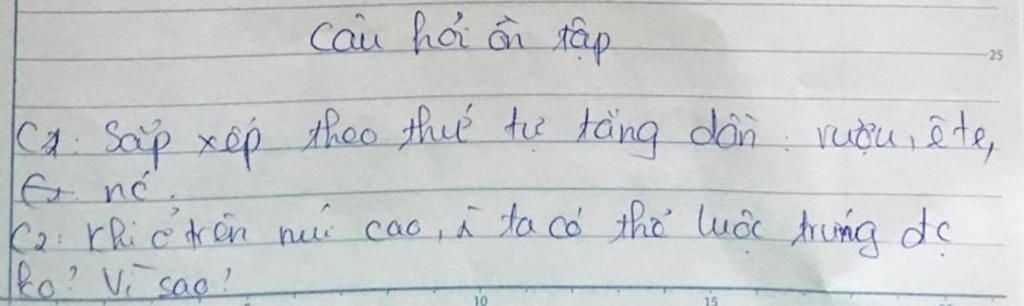 Câu hỏi ôn tập
C1: Sắp xếp theo thứ tự tăng dần: rượu, ête,
nc.
C2: Khi ở trên núi cao, ta có thể luộc trứng dc
ko? Vì sao?